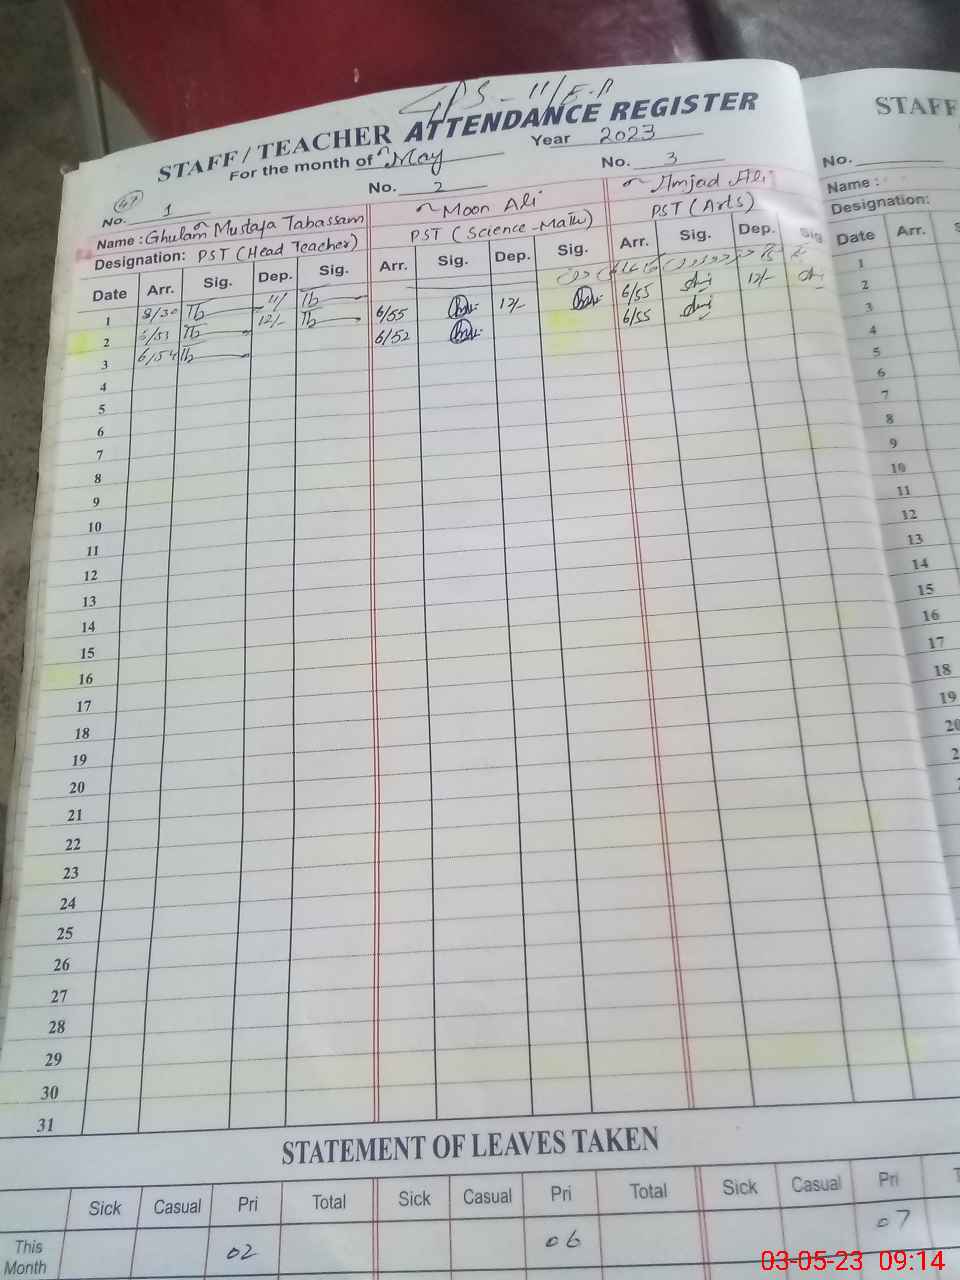 GPS - 11/E.B
STAFF / TEACHER ATTENDANCE REGISTER
For the month of May Year 2023
67
No. 1 No. 2 No. 3
Name : Ghulam Mustafa Tabassam Moon Ali Amjad Ali
Designation: PST (Head Teacher) PST (Science-Math) PST (Arts)
Date Arr. Sig. Dep. Sig. Arr. Sig. Dep. Sig. Arr. Sig. Dep. Sig
1 8/30 Tb 11/ Tb
2 6/53 Tb 12/- Tb 6/55 12/- 6/55 12/-
3 6/54 Tb 6/52 6/55
4
5
6
7
8
9
10
11
12
13
14
15
16
17
18
19
20
21
22
23
24
25
26
27
28
29
30
31
STATEMENT OF LEAVES TAKEN
Sick Casual Pri Total Sick Casual Pri Total Sick Casual Pri
This Month 02 06 07
STAFF
No.
Name :
Designation:
Date Arr.
1
2
3
4
5
6
7
8
9
10
11
12
13
14
15
16
17
18
19
20
03-05-23 09:14